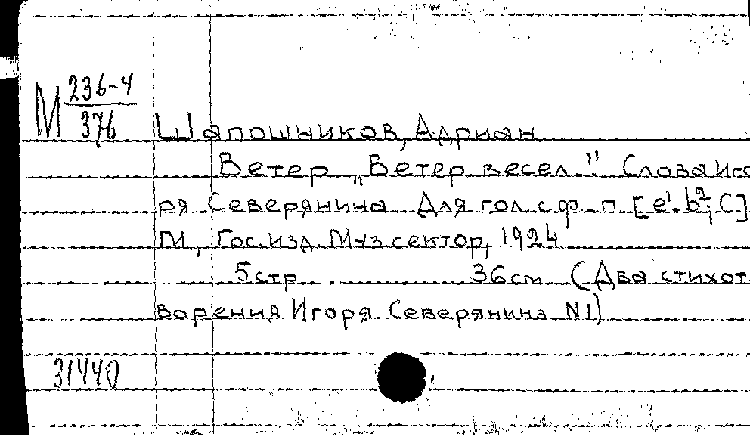 М 236-4
376
Шапошников, Адриан
Ветер „Ветер весел." Слова Иго
ря Северянина Для гол. с ф-п [e¹-b²; C]
М, Гос. изд. Муз сектор, 1924
5 стр. 36 см (Два стихот
ворения Игоря Северянина N1)
31440